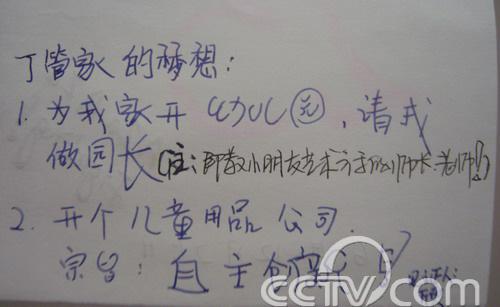 丁管家的梦想：
1. 为我家开幼儿园，请我
做园长（注：即教小朋友艺术方
2. 开个儿童用品公司.
宗旨：自主创
CCTV.com